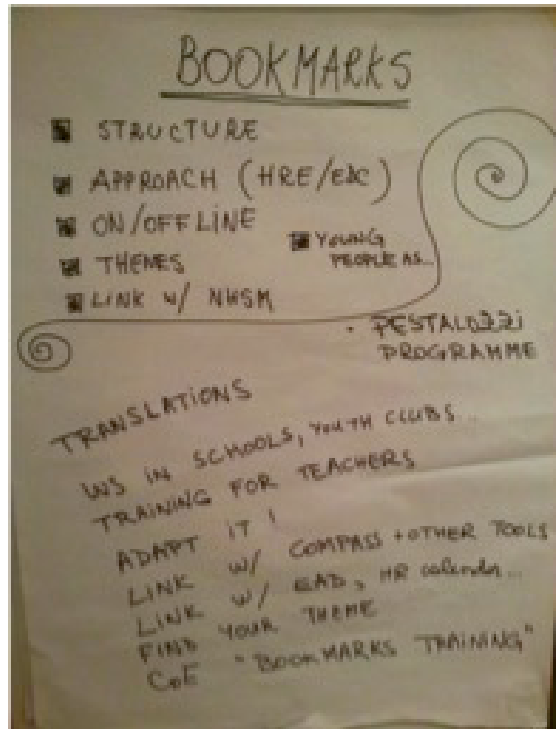 BOOKMARKS
STRUCTURE
APPROACH (HRE/EDC)
ON/OFFLINE
THEMES
LINK W/ NHSM
YOUNG
PEOPLE AS...
• PESTALOZZI
PROGRAMME
TRANSLATIONS
WS IN SCHOOLS, YOUTH CLUBS...
TRAINING FOR TEACHERS
ADAPT IT!
LINK W/ COMPASS + OTHER TOOLS
LINK W/ EAD, HR calendar...
FIND YOUR THEME
CoE "BOOKMARKS TRAINING"